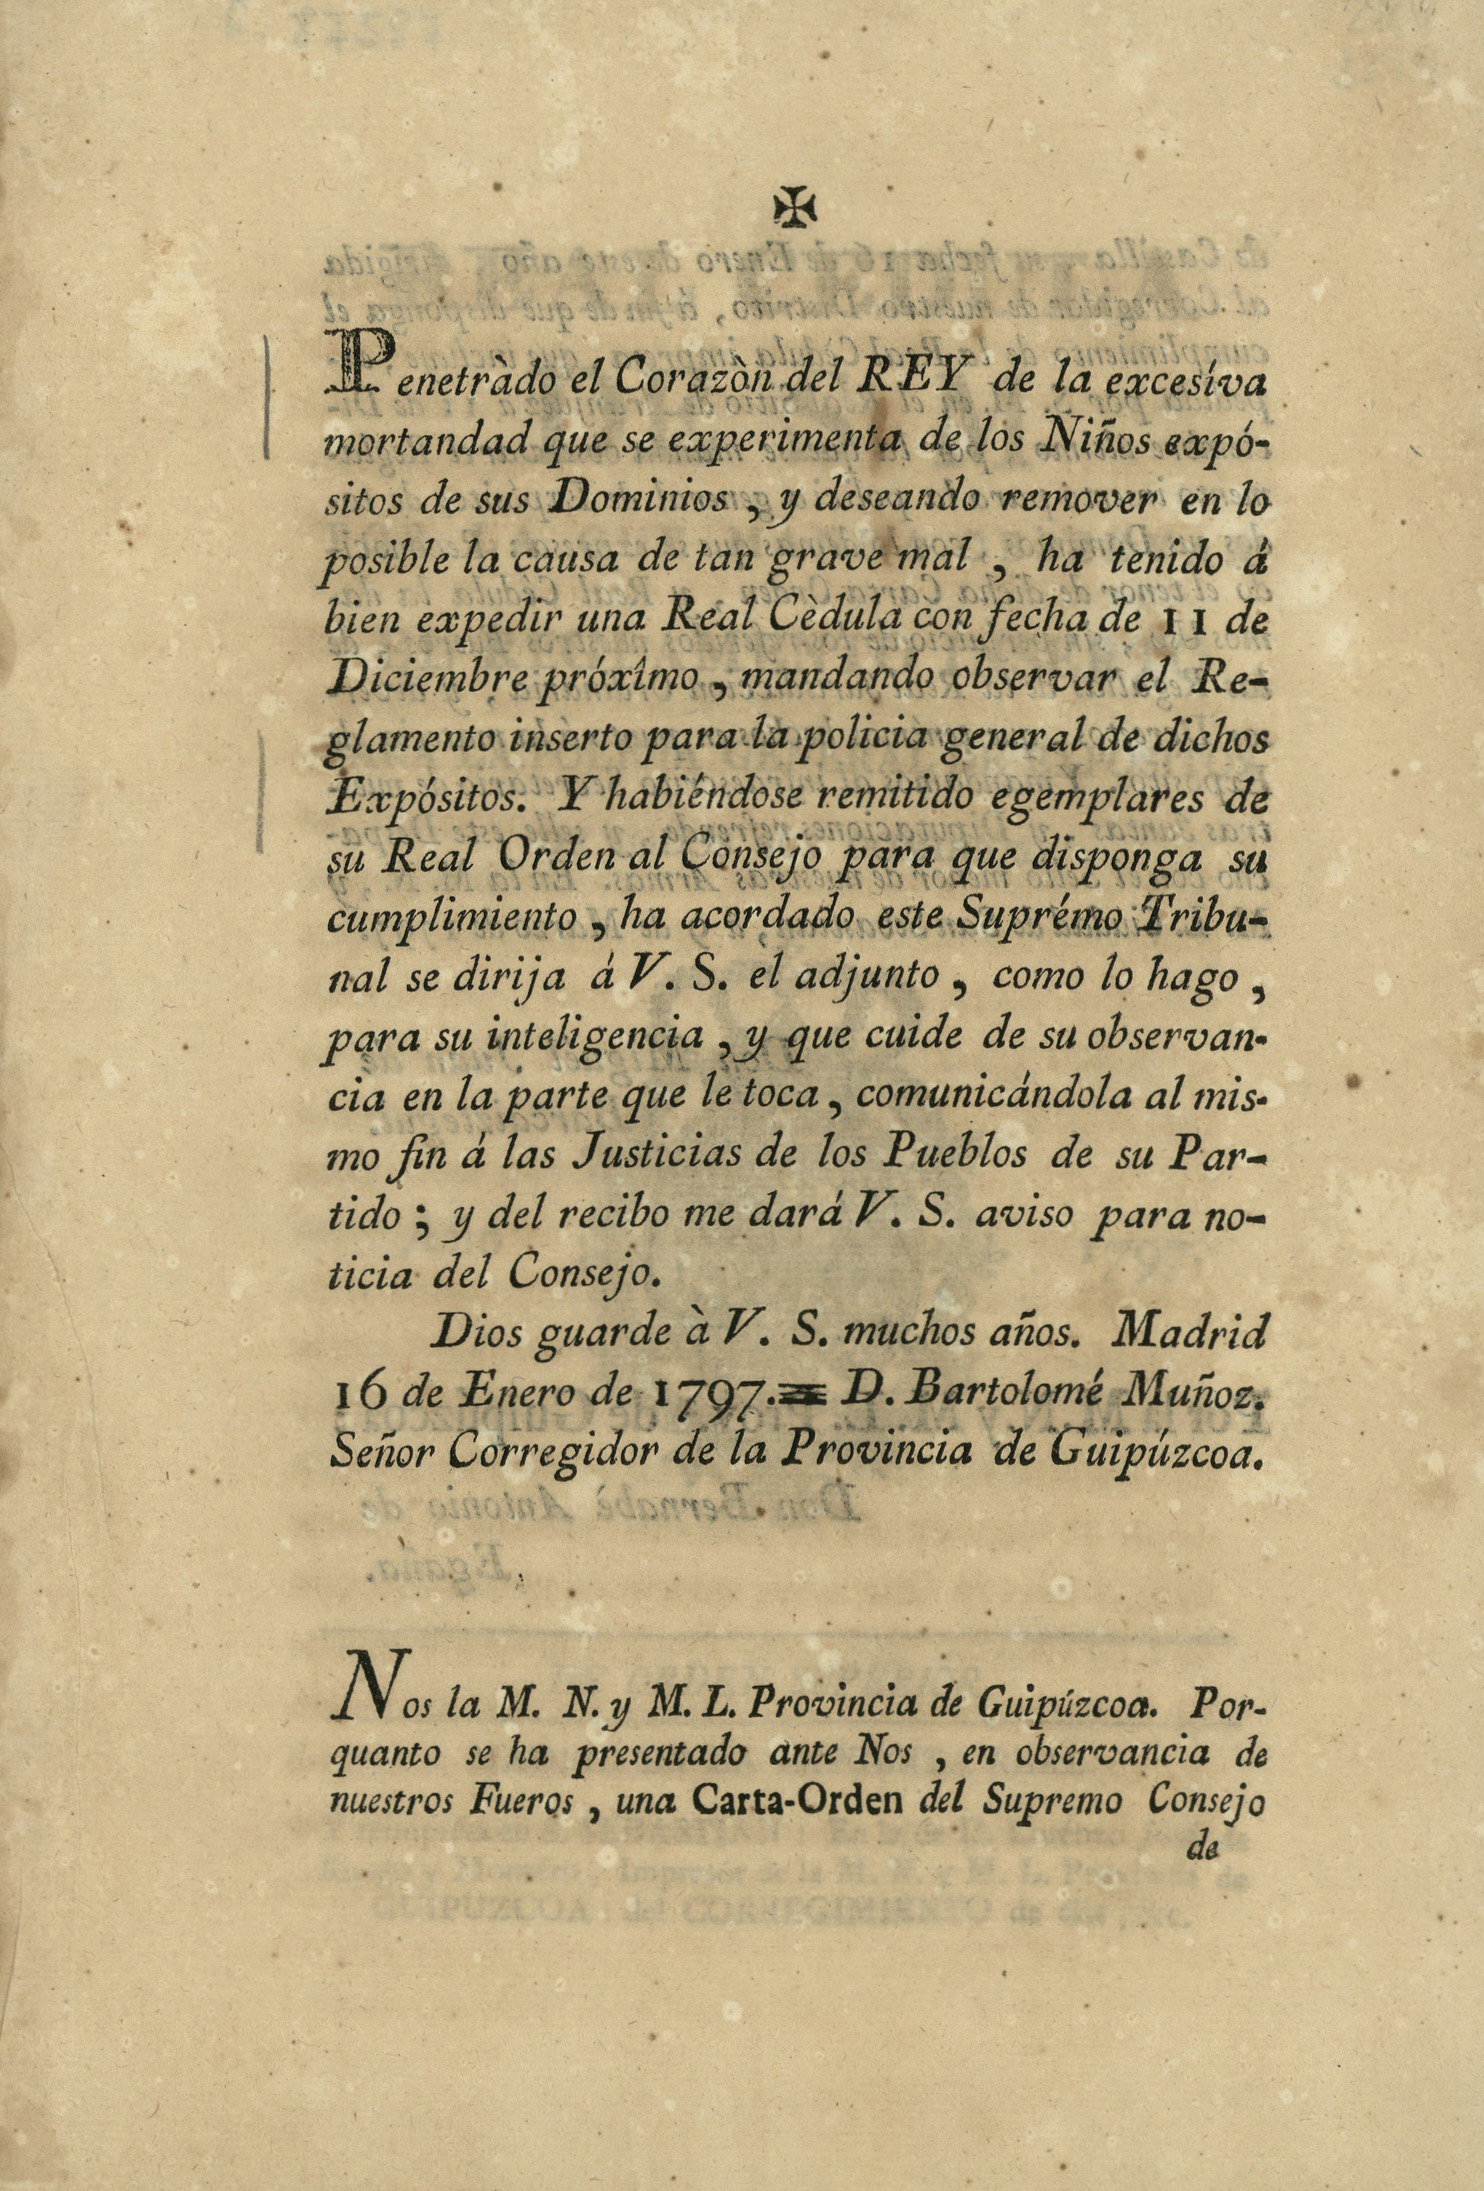 ✠
Penetràdo el Corazòn del REY de la excesíva
mortandad que se experimenta de los Niños expó-
sitos de sus Dominios , y deseando remover en lo
posible la causa de tan grave mal , ha tenido á
bien expedir una Real Cèdula con fecha de 11 de
Diciembre próxîmo , mandando observar el Re-
glamento inserto para la policia general de dichos
Expósitos. Y habiéndose remitido egemplares de
su Real Orden al Consejo para que disponga su
cumplimiento , ha acordado este Suprémo Tribu-
nal se dirija á V. S. el adjunto , como lo hago ,
para su inteligencia , y que cuide de su observan-
cia en la parte que le toca , comunicándola al mis-
mo fin á las Justicias de los Pueblos de su Par-
tido ; y del recibo me dará V. S. aviso para no-
ticia del Consejo.
Dios guarde à V. S. muchos años. Madrid
16 de Enero de 1797.= D. Bartolomé Muñoz.
Señor Corregidor de la Provincia de Guipúzcoa.
Nos la M. N. y M. L. Provincia de Guipúzcoa. Por-
quanto se ha presentado ante Nos , en observancia de
nuestros Fueros , una Carta-Orden del Supremo Consejo
de